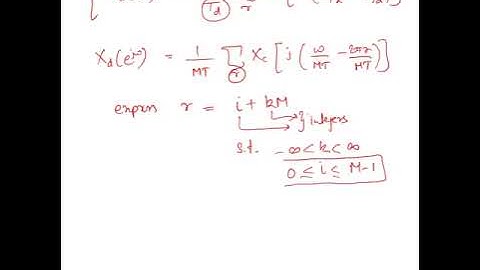 T_d r
X_d(e^{jω}) = 1/MT Σ_r X_c [ j ( ω/MT - 2πr/MT ) ]
express r = i + kM
} integers
s.t. -∞ < k < ∞
0 ≤ i ≤ M-1